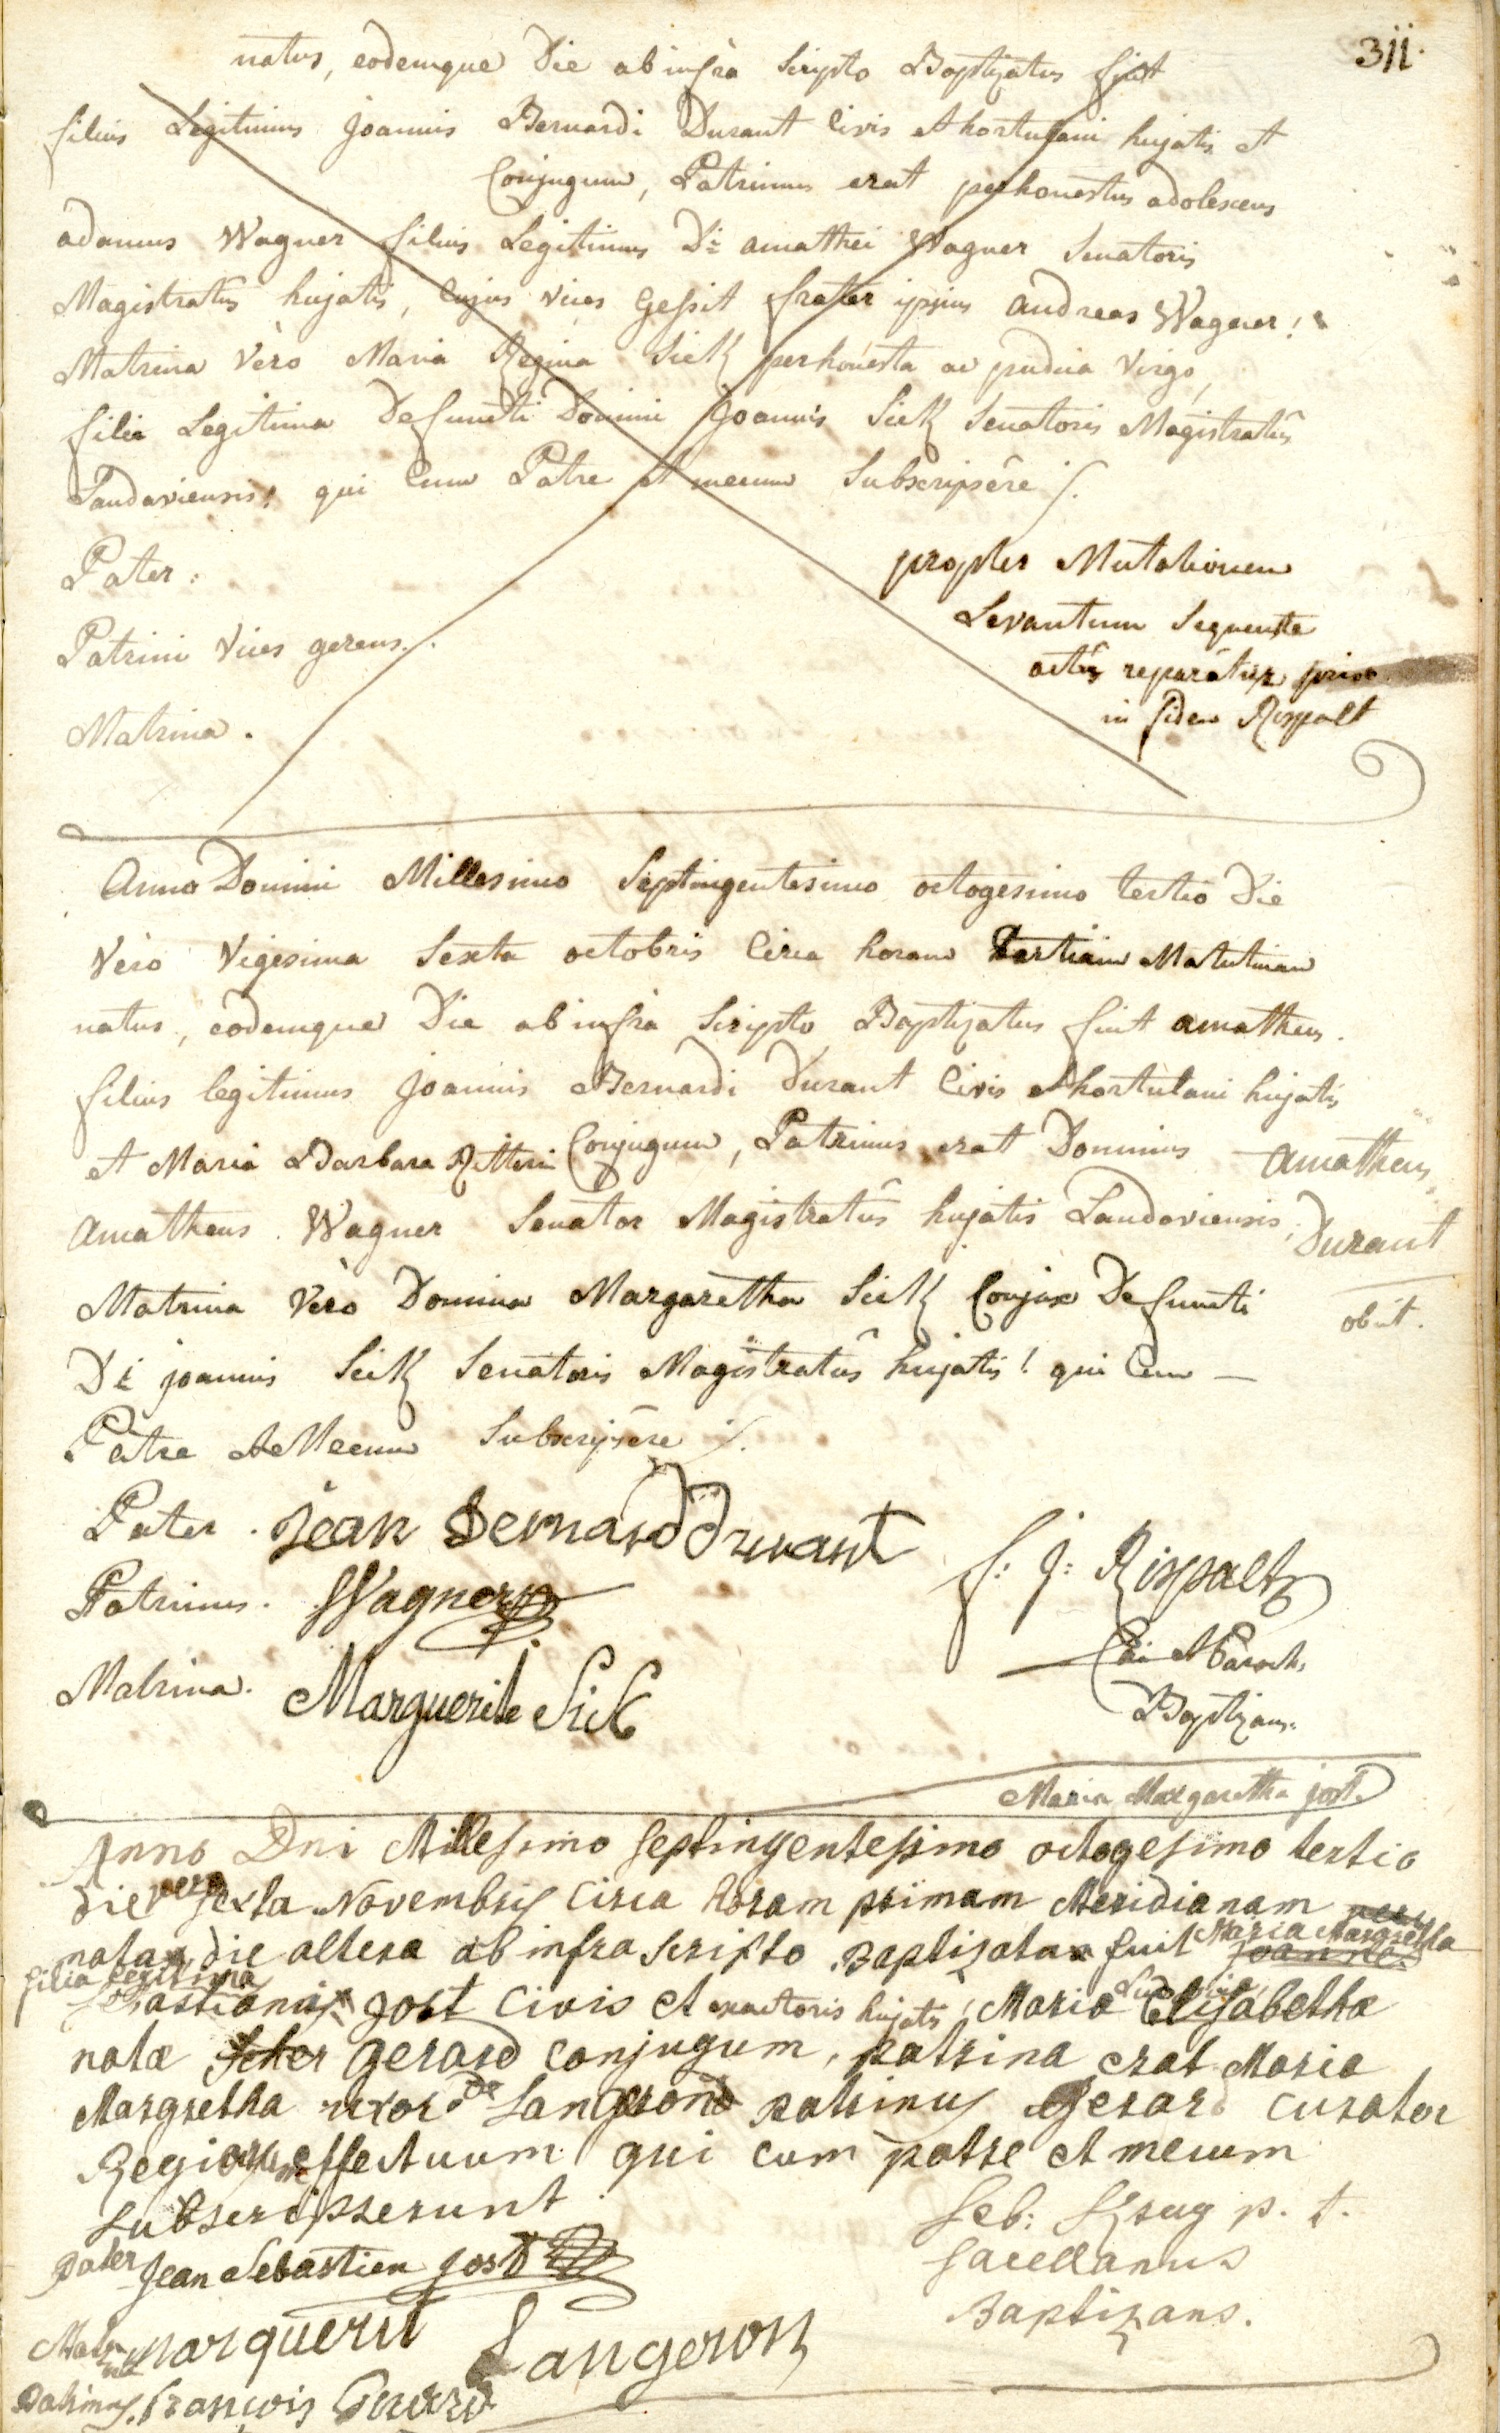 311.
natus, eodemque Die ab infrà Scripto Baptizatus fuit
filius Legitimus Joannis Bernardi Durant Civis et hortulani hujatis et
Conjugum, Patrinus erat perhonestus adolescens
adamus Wagner filius Legitimus D: amathei Wagner Senatoris
Magistratûs hujatis, Cujus vices Gessit frater ipsius andreas Wagner!
Matrina Vèrò Maria Regina Sick perhonesta ac pudica Virgo,
filia Legitima Defuncti Domini Joannis Sick Senatoris Magistratûs
Landaviensis! qui Cum Patre et mecum Subscripsêre
Pater:
Patrini Vices gerens.
Matrina.
propter Mutationem
Levantum Sequente
actûs reparâtur
in fidem Rispalt
Anno Domini Millesimo Septingentesimo octogesimo tertio Die
Vèrò Vigesima Sexta octobris Circa horam tertiam Matutinam
natus, eodemque Die ab infrà Scripto Baptizatus fuit amatheus.
filius legitimus Joannis Bernardi Durant Civis et hortulani hujatis
et Maria Barbara Ritterin Conjugum, Patrinus erat Dominus
Amatheus
amatheus Wagner Senator Magistratûs hujatis Landaviensis,
Durant
Matrina Vèrò Domina Margaretha Sick Conjux Defuncti
obiit.
Di joannis Sick Senatoris Magistratûs hujatis! qui Cum —
Patre et Mecum Subscripsêre
Pater. Jean Bernard Durant
F: J: Rispalt
Patrinus. Wagner
et Paroch.
Matrina. Marguerite Sick
Baptizans.
Maria Margaretha jost
Anno Dni Millesimo septingentesimo octogesimo tertio
die vero sexta Novembris circa horam primam Meridianam
nata die altera ab infra scripto Baptizata fuit Maria Margretha
filia legitima
Sebastiani Jost civis et exactoris hujatis, Maria Elisabetha
nata Gerard conjugum, patrina erat Maria
Margretha uxor de Langeron patrinus Gerard curator
Regiorum effectuum qui cum patre et mecum
subscripserunt
Seb: Krug p. t.
Pater Jean Sebastien Jost
sacellanus
Baptizans.
Matrina Marguerit Langeron
Patrinus. François Gerard